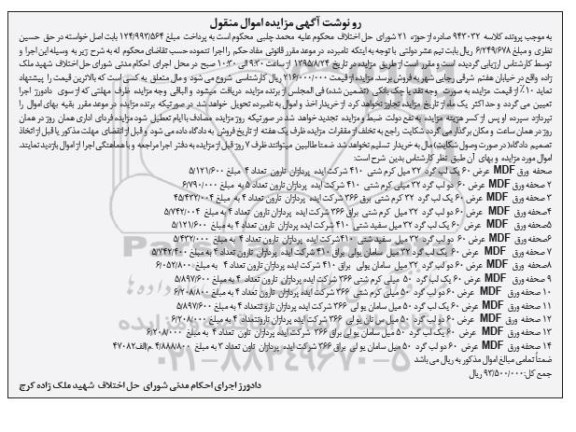 رو نوشت آگهی مزایده اموال منقول
به موجب پرونده کلاسه ۹۴۳۰۳۲ صادره از حوزه ۲۱ شورای حل اختلاف محکوم علیه محمد چلبی محکوم است به پرداخت مبلغ ۱۲۴/۹۹۳/۵۶۴ ریال بابت اصل خواسته در حق حسین
نظری و مبلغ ۶/۲۴۹/۶۷۸ ریال بابت نیم عشر دولتی با توجه به اینکه نامبرده در موعد مقرر قانونی مفاد حکم را اجرا ننموده حسب تقاضای محکوم له به شرح زیر به وسیله این اجرا و
توسط کارشناس ارزیابی گردیده است و مقرر است از طریق مزایده در تاریخ ۱۳۹۵/۸/۲۴ از ساعت ۹:۳۰ الی ۱۰:۳۰ صبح در محل اجرای احکام مدنی شورای حل اختلاف شهید ملک
زاده واقع در خیابان هفتم شرقی رجایی شهر به فروش برسد. مزایده از قیمت ۲۱۶/۰۰۰/۰۰۰ ریال کارشناسی شروع می شود و مال متعلق به کسی است که بالاترین قیمت را پیشنهاد
نماید ۱۰٪ از قیمت مزایده به صورت وجه نقد یا چک بانکی (تضمین شده) فی المجلس از برنده مزایده دریافت میشود و الباقی وجه مزایده ظرف مهلتی که از سوی دادورز اجرا
تعیین می گردد و حداکثر یک ماه از تاریخ مزایده تجاوز نخواهد کرد از خریدار اخذ و اموال به نامبرده تحویل خواهد شد در صورتیکه برنده مزایده در موعد مقرر بقیه بهای اموال را
نپردازد سپرده او پس از کسر هزینه مزایده به نفع دولت ضبط و مزایده تجدید خواهد شد در صورتیکه روز مزایده مصادف با ایام تعطیل شود مزایده فردای اداری همان روز در همان
روز در همان ساعت و مکان برگذار می گردد شکایت راجع به تخلف از مقررات مزایده ظرف یک هفته از تاریخ فروش به دادگاه داده می شود و قبل از انقضای مهلت مذکور یا قبل از اتخاذ
تصمیم دادگاه( در صورت وصول شکایت) مال به خریدار تسلیم نخواهد شد ضمنا طالبین میتوانند ظرف ۷ روز قبل از مزایده به دفتر اجرا مراجعه و با هماهنگی اجرا از اموال بازدید نمایند.
اموال مورد مزایده و بهای آن طبق نظر کارشناس بدین شرح است:
صحفه ورق MDF عرض ۶۰ یک لب گرد ۳۲ میل کرم شنی ۴۱۰ شرکت ایده پردازان تارون تعداد ۴ مبلغ ۵/۱۲۱/۶۰۰
۲ صحفه ورق MDF عرض ۶۰ دو لب گرد ۳۲ میل کرم شنی ۴۱۰ شرکت ایده پردازان تارون تعداد ۵ به مبلغ ۶/۷۹۰/۰۰۰
۳ صحفه ورق MDF عرض ۶۰ یک لب گرد ۳۲ کرم شنی براق ۳۶۶ شرکت ایده پردازان تارون تعداد ۴ به مبلغ ۴۵/۴۳۲/۰۰۴
۴صحفه ورق MDF عرض ۶۰ دو لب گرد ۳۲ میل کرم شنی براق ۳۶۶ شرکت ایده پردازان تارون تعداد ۴ به مبلغ ۵/۷۴۲/۰۰۴
۵صحفه ورق MDF عرض ۶۰ یک لب گرد ۳۲ میل سفید شنی ۴۱۰ شرکت ایده پردازان تارون تعداد ۴ به مبلغ ۵/۱۲۱/۶۰۰
۶صحفه ورق MDF عرض ۶۰ دو لب گرد ۳۲ میل سفید شنی ۴۱۰شرکت ایده پردازان تارون تعداد ۴ به مبلغ ۵/۴۳۲/۰۰۰
۷ صحفه ورق MDF عرض ۶۰ یک لب گرد ۳۲ میل سامان یولی براق ۴۱۰ شرکت ایده پردازان تارون تعداد ۴ به مبلغ ۵/۷۴۲/۴۰۰
۸صحفه ورق MDF عرض ۶۰ دو لب گرد ۳۲ میل سامان یولی براق ۴۱۰ شرکت ایده پردازان تارون تعداد ۴ به مبلغ ۶/۰۵۲/۸۰۰
۹ صحفه ورق MDF عرض ۶۰ یک لب گرد ۵۰ میلی کرم شنی ۳۶۶ شرکت ایده پردازان تارون تعداد ۴ به مبلغ ۵/۸۹۷/۶۰۰
۱۰ صحفه ورق MDF عرض ۶۰ دو لب گرد ۵۰ میلی کرم شنی ۳۶۶ شرکت ایده پردازان تارون تعداد ۴ به مبلغ ۶/۲۰۸/۸۰۰
۱۱ صحفه ورق MDF عرض ۶۰ یک لب گرد ۵۰ میل سامان یولی ۳۶۶ شرکت ایده پردازان تارون تعداد ۴ به مبلغ ۵/۸۹۷/۶۰۰
۱۲ صحفه ورق MDF عرض ۶۰ دو لب گرد ۵۰ میل یولی ۳۶۶ شرکت ایده پردازان تارون تعداد ۴ به مبلغ ۶/۲۰۸/۰۰۰
۱۳ صحفه ورق MDF عرض ۶۰ یک لب گرد ۵۰ میل سامان یولی براق ۳۶۶ شرکت ایده پردازان تاون تعداد ۴ به مبلغ ۶/۲۰۸/۰۰۰
۱۴ صحفه ورق MDF عرض ۶۰ دو لب گرد ۵۰ میل سامان یولی براق ۳۶۶ شرکت ایده پردازان تاون تعداد ۳ به مبلغ ۴/۸۸۸/۸۰۰ .م الف ۴۷۰۸۲
ضمناً تمامی مبالغ اموال مذکور به ریال می باشد
جمع کل: ۹۳/۵۰۰/۰۰۰ ریال
دادورز اجرای احکام مدنی شورای حل اختلاف شهید ملک زاده کرج
۰۲۱-۸۸۳۴۹۶۷۰-۵